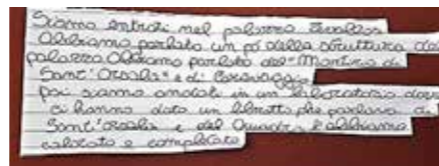 Siamo entrati nel palazzo Zevallos
Abbiamo parlato un pó della struttura del
palazzo Abbiamo parlato del "Martirio di
Sant'Orsola" e di Caravaggio
poi siamo andati in un laboratorio dove
ci hanno dato un libretto che parlava di
Sant'Orsola e del Quadro e l'abbiamo
colorato e completato